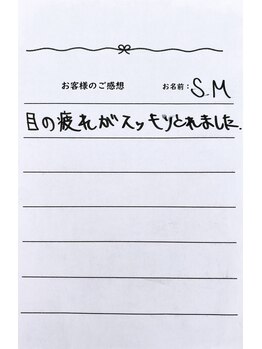 お客様のご感想 お名前: S.M
目の疲れがスッキリとれました.